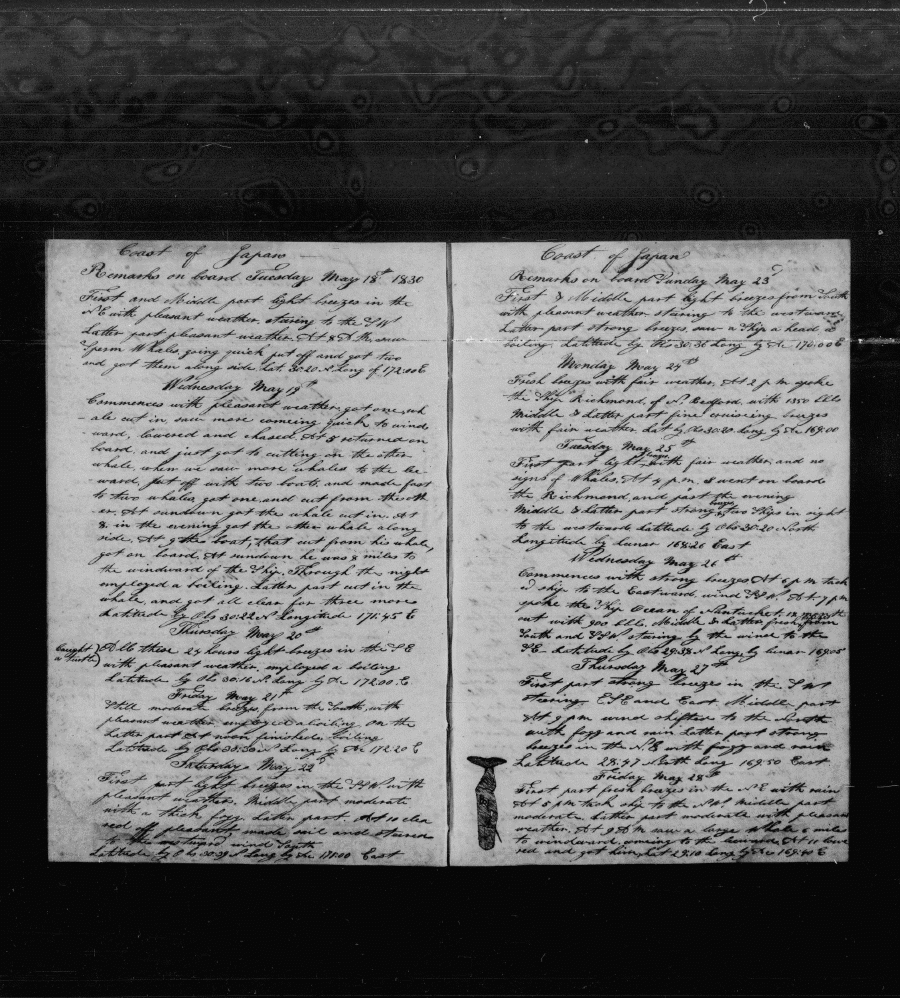 Coast of Japan
Remarks on board Tuesday May 18th 1830
First and Middle part light breezes in the
NE with pleasant weather. staring to the SW
Latter part pleasant weather At 8 A.M. saw
Sperm Whales, going quick put off and got two
and got them along side Lat. 30.20 N Long of 172.00 E
Wednesday May 19th
Commences with pleasant weather, got one wh
-ale cut in saw more comeing quick to wind
ward, lowered and chased. At 5 returned on
board, and just got to cutting on the other
whale, when we saw more whales to the lee
ward, put off with two boats, and made fast
to two whales, got one, and cut from the oth
er. At sundown got the whale cut in. At
8 in the evening got the other whale along
side. At 9 the boat, that cut from his whale,
got on board. At sundown he was 8 miles to
the windward of the Ship. Through the night
employed a boiling. Latter part cut in the
whale, and got all clear for three more
Latitude by Obs 30.22 N Longitude 171.45 E
Thursday May 20th
Caught a turtle) All these 24 hours light breezes in the SE
with pleasant weather, employed a boiling
Latitude by Obs 30.16 N Long by Ac 172.00 E
Friday May 21st
Still moderate breezes, from the South, with
pleasant weather employed a boiling. On the
Latter part At noon finished boiling
Latitude by Obs N Long by Ac 172.20 E
Saturday May 22d
First part light breezes in the with
pleasant weather. Middle part moderate
with a thick fogg. Latter part. At 10 clea
red off pleasant made sail and stared
to the westward wind South
Latitude by Obs N Long by Ac 171.00 East
Coast of Japan
Remarks on board Sunday May 23d
First & Middle part light breezes from South
with pleasant weather staring to the westward
Latter part strong breezes, saw a Ship a head a
boiling. Latitude by Obs 30.36 Long by Ac 170.00 E
Monday May 24th
Fresh breezes with fair weather. At 2 p m spoke
the Ship Richmond, of N. Bedford with 1350 bbls
Middle & Latter part fine cruiseing breezes
with fair weather. Lat by Obs 30.20 Long by Ac 169.00
Tuesday May 25th
First part light breezes with fair weather, and no
signs of Whales. At 4 p.m. I went on board
the Richmond, and past the evening
Middle & Latter part strong breezes, two Ships in sight
to the westward Latitude by Obs 30.20 North
Longitude by lunar 168.26 East
Wednesday May 26th
Commences with strong breezes At 6 p m tack
d ship to the Eastward, wind SSW. At 7 p m
spoke the Ship Ocean of Nantucket,
out with 900 bbls. Middle & Latter fresh from
South and SSW staring by the wind to the
SE. Latitude by Obs 29.38 N Long by lunar 169.05
Thursday May 27th
First part strong breezes in the SW
stearing ESE and East. Middle part
At 9 p m wind shifted to the North
with fogg and rain Latter part strong
breezes in the NE with fogg and rain
Latitude 28.47 North Long 169.50 East
Friday May 28th
First part fresh breezes in the NE with rain
At 5 p m tack ship to the Middle part
moderate. Latter part moderate with pleasant
weather. At 9 A M saw a large whale 6 miles
to windward, comeing to the leeward At 10 lowe
red and got him, Lat 29.10 Long by Ac 169.40 E